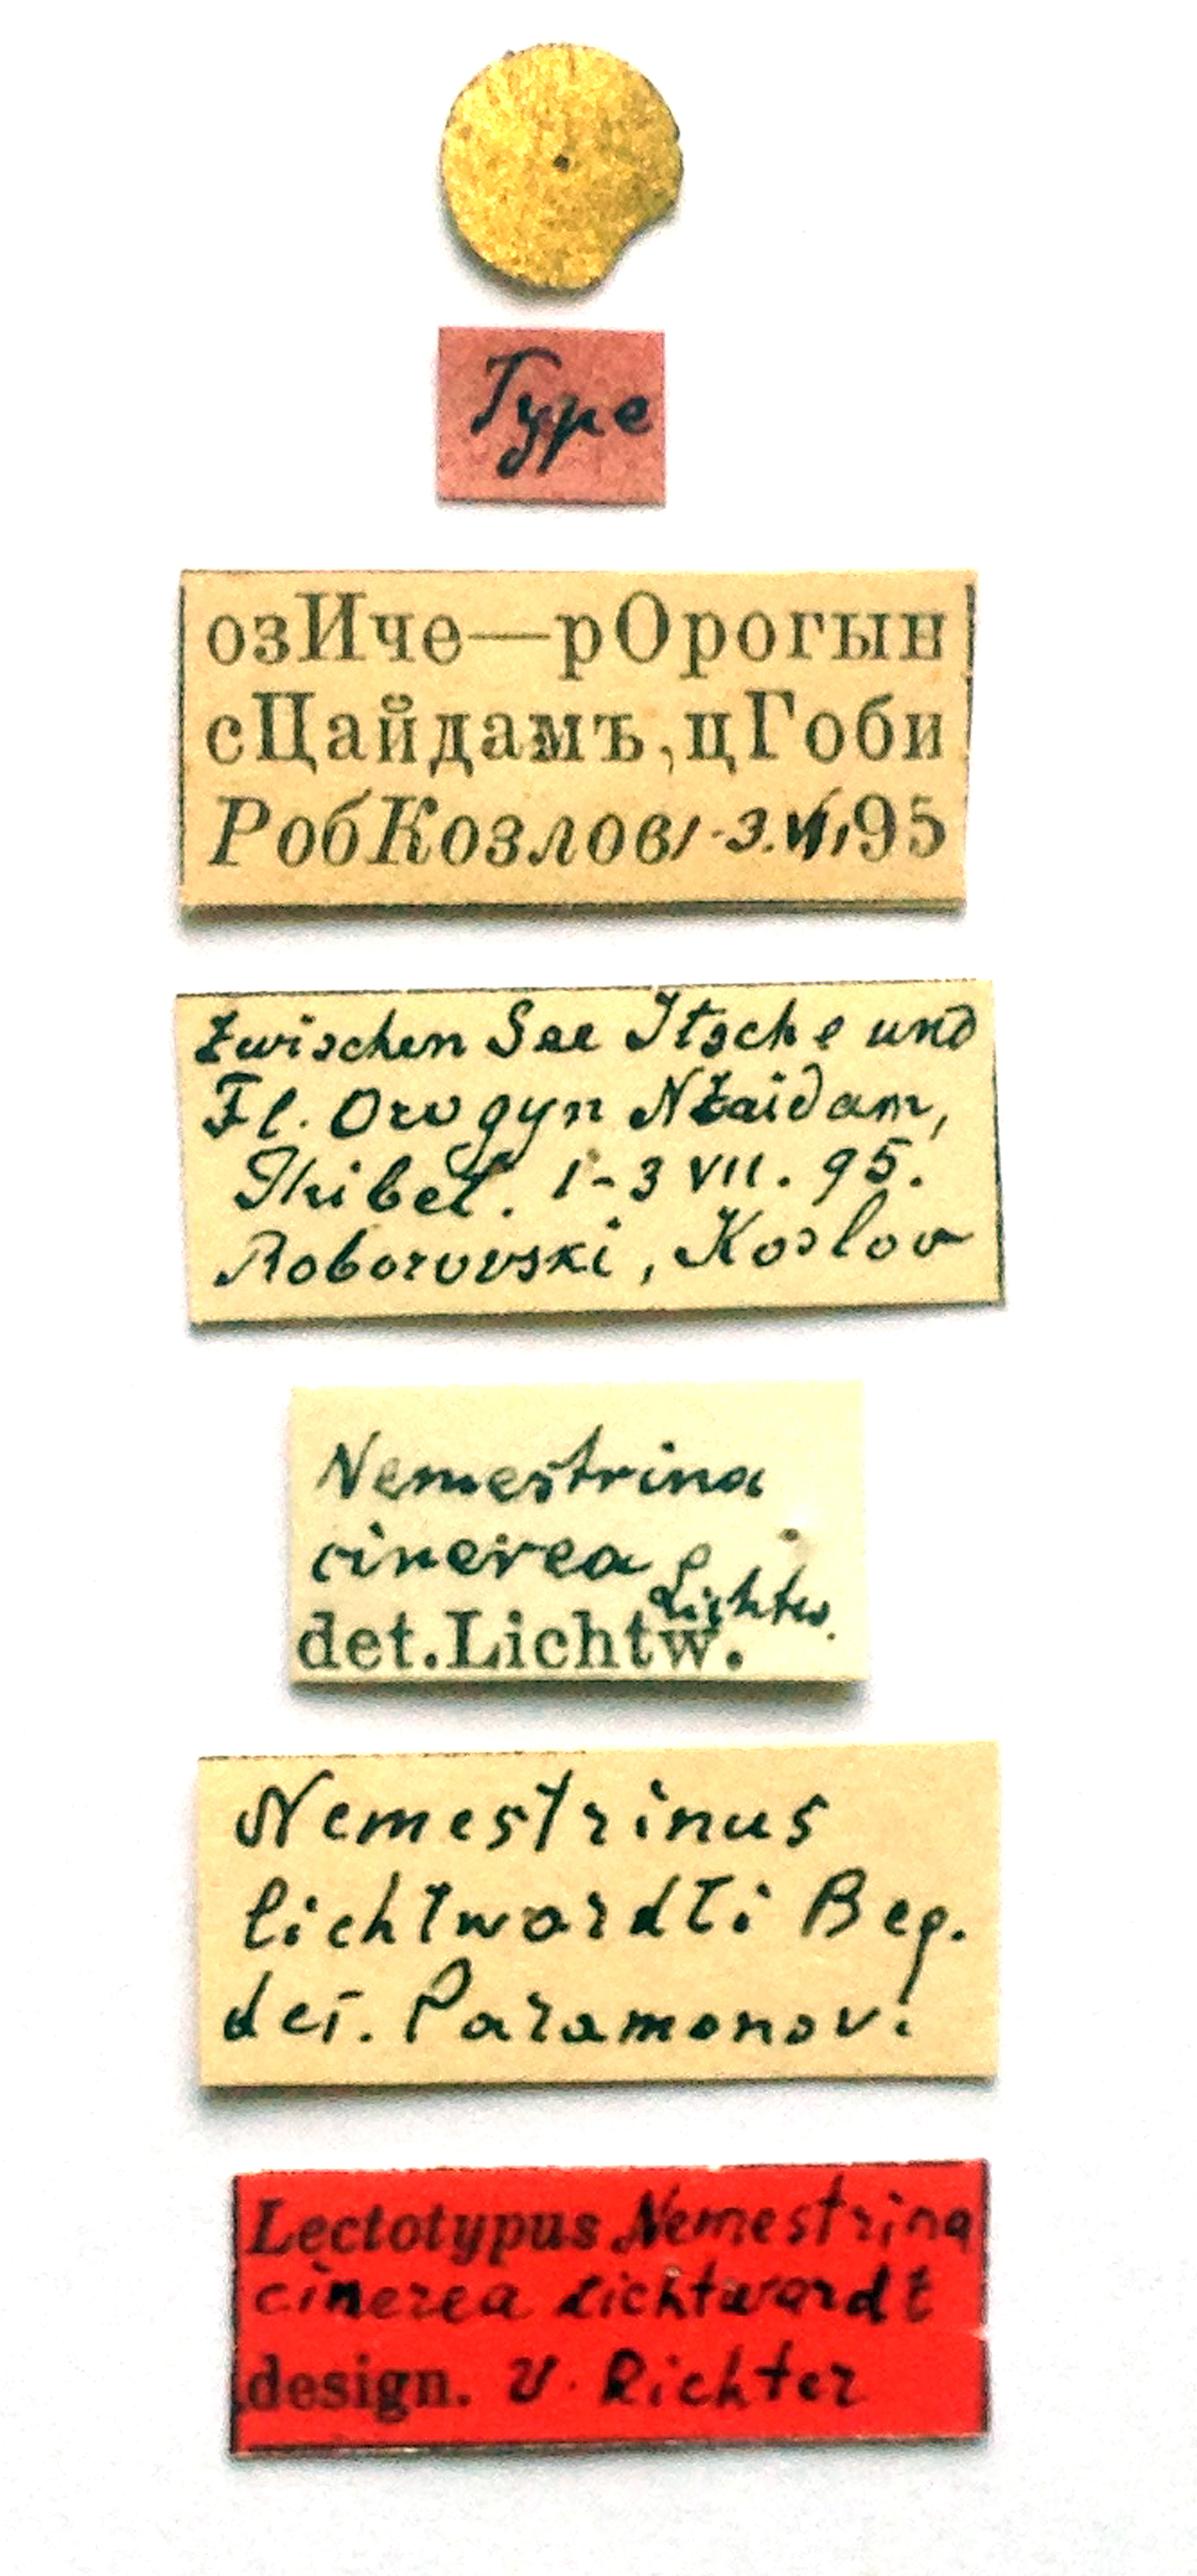 Type
озИче—рОрогын
сЦайдамъ,цГоби
РобКозлов 1-3.VII,95
Zwischen See Itsche und
Fl. Orogyn NZaidam,
Thibet. 1-3 VII. 95.
Roborovski, Koslov
Nemestrina
cinerea ♀
Lichtw.
det.Lichtw.
Nemestrinus
lichtwardti Beq.
det. Paramonov.
Lectotypus Nemestrina
cinerea Lichtwardt
design. V. Richter